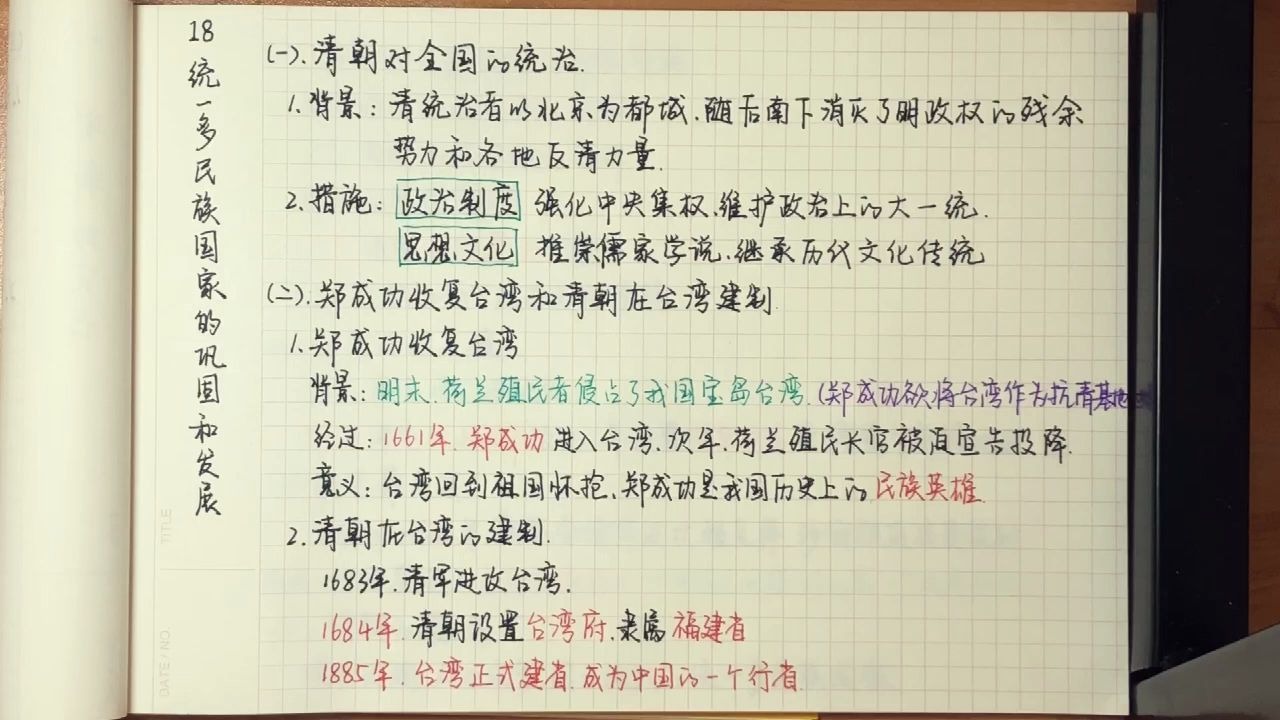 18 统一多民族国家的巩固和发展
(一).清朝对全国的统治.
1.背景：清统治者以北京为都城.随后南下消灭了明政权的残余
势力和各地反清力量.
2.措施：政治制度 强化中央集权、维护政治上的大一统.
思想文化 推崇儒家学说、继承历代文化传统
(二).郑成功收复台湾和清朝在台湾建制.
1.郑成功收复台湾
背景：明末.荷兰殖民者侵占了我国宝岛台湾.(郑成功欲将台湾作为抗清基地
经过：1661年.郑成功进入台湾、次年、荷兰殖民长官被迫宣告投降.
意义：台湾回到祖国怀抱、郑成功是我国历史上的民族英雄
2.清朝在台湾的建制.
1683年.清军进攻台湾.
1684年.清朝设置台湾府.隶属福建省
1885年.台湾正式建省.成为中国的一个行省
TITLE
DATE / NO.